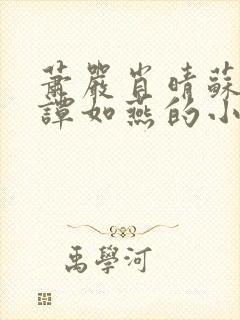 蕭嚴肖晴蘇
譚如燕的小
禹學河